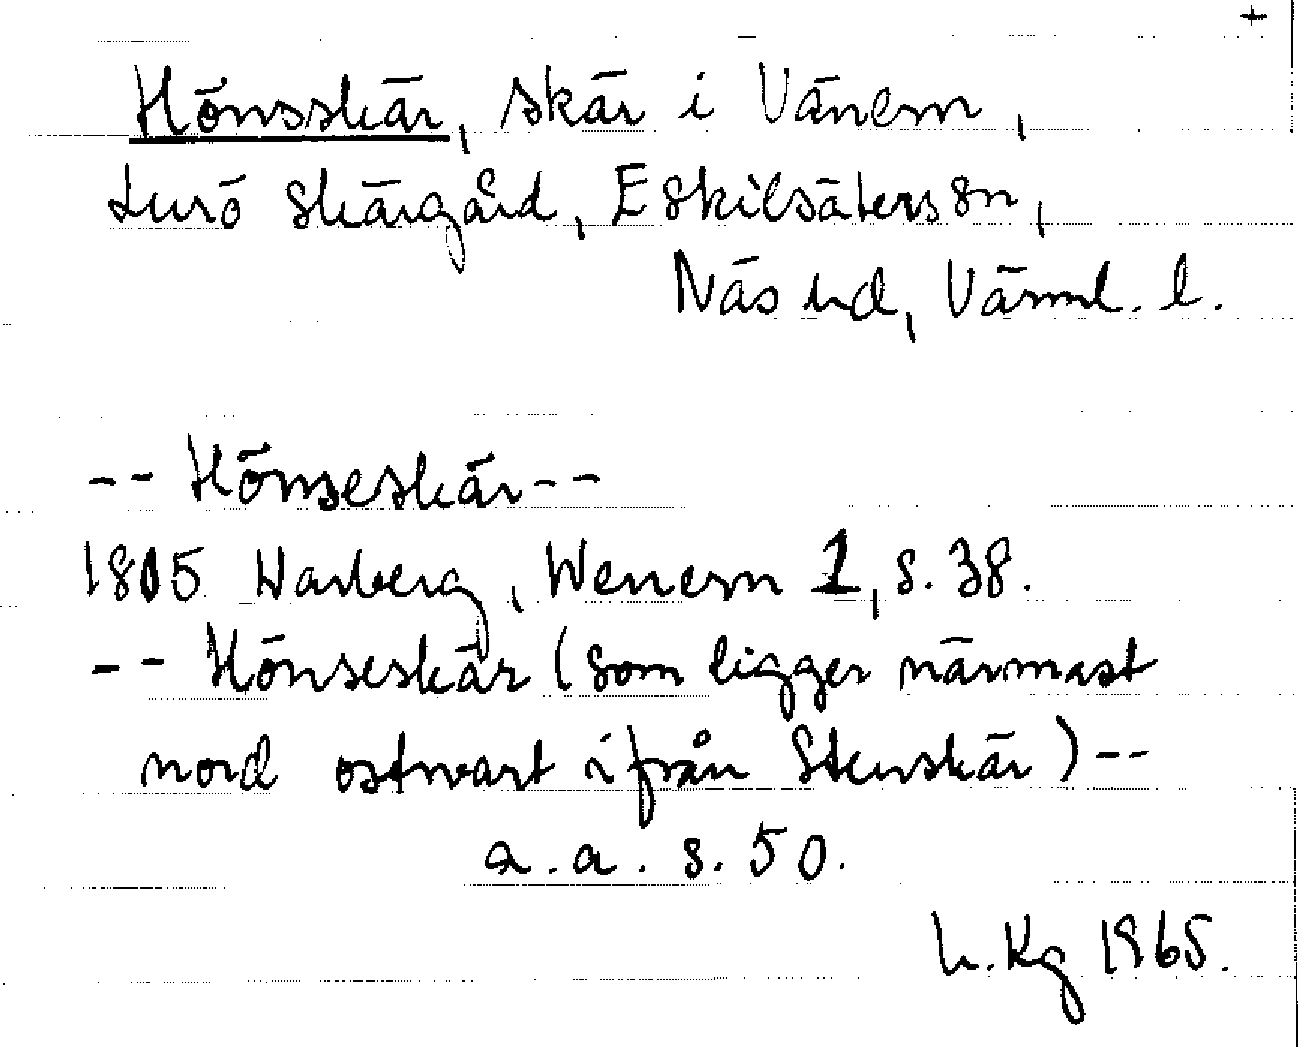 +
Hönsskär, skär i Vänern,
Lurö skärgård, Eskilsäters sn,
Näs hd, Värml. l.
-- Hönseskär --
1805 Warberg, Wenern 1, s. 38.
-- Hönseskär (som ligger närmast
nord ostwart ifrån Stenskär) --
a.a. s. 50.
h.Kg 1965.